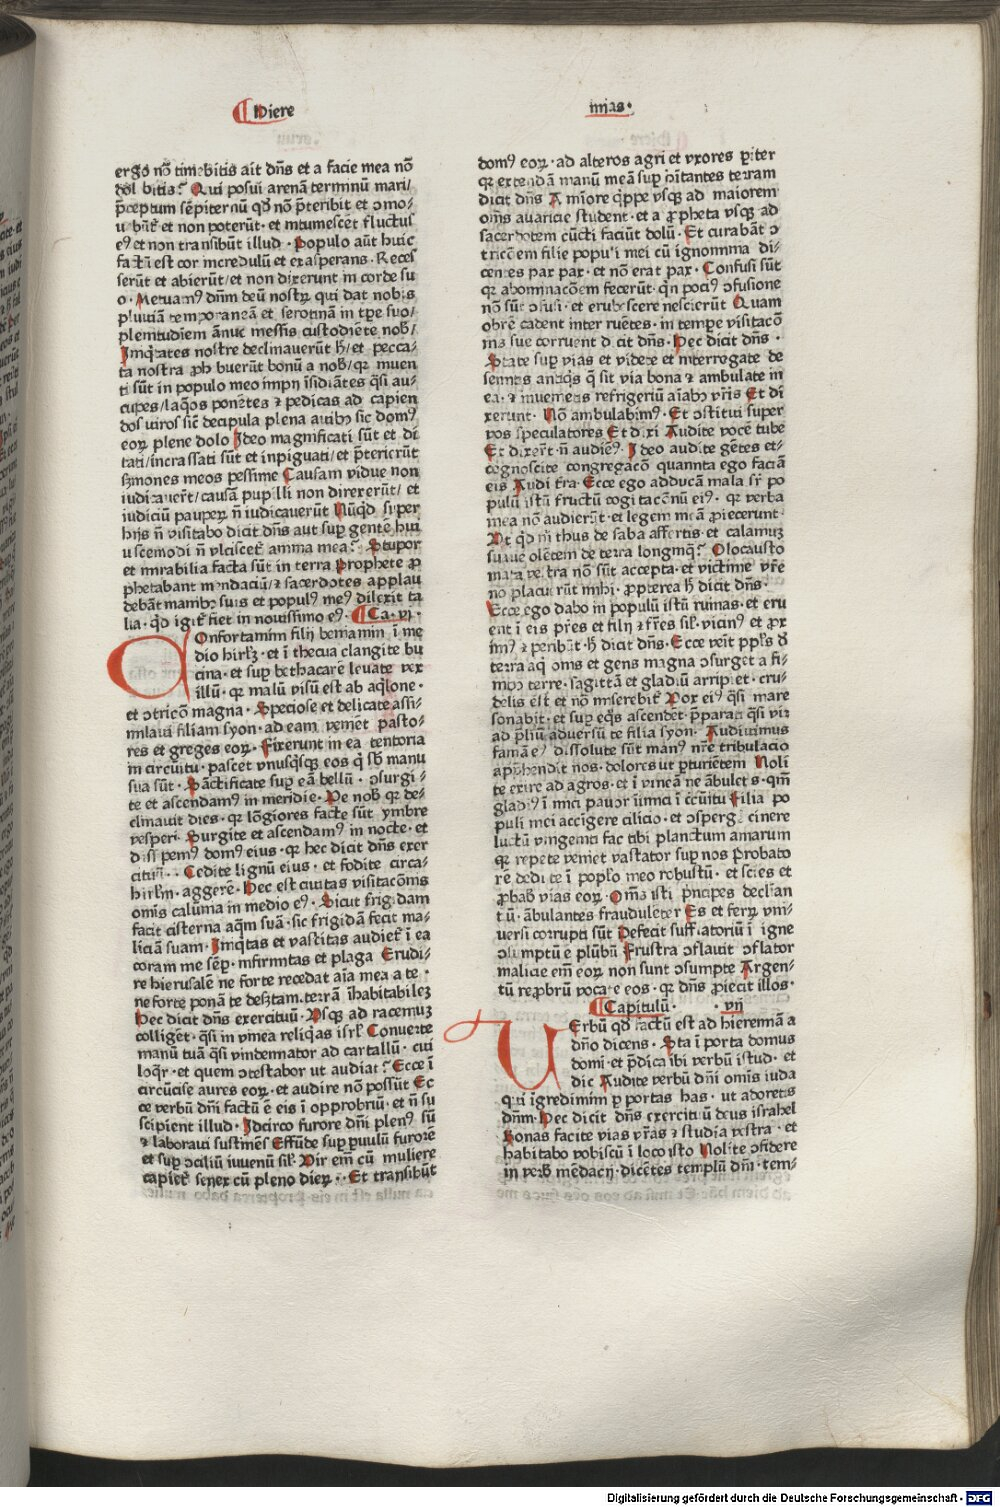 Hiere
mias·
ergo nō timebitis ait dn̄s et a facie mea nō
dol bitis? Qui posui arenā terminū mari/
p̄ceptum sēpiternū qd̄ nō p̄teribit et ɔmo-
ubūt̄ et non poterūt· et intumescēt fluctus
eꝰ et non transibūt illud · Populo aūt huic
factū est cor incredulū et exasperans · Reces
serūt et abierūt/et non dixerunt in corde su
o · Metuamꝰ dn̄m deū nostrꝝ qui dat nobis
pluuiā temporaneā et serotinā in tp̄e suo/
plenitudiem ānue messis custodiēte nob̄/
Iniq̄tates nostre declinauerūt h̄/et pecca-
ta nostra ꝓh buerūt bonū a nob̄/qꝛ inuen
ti sūt in populo meo impij īsidiātes q̄si au-
cupes/laq̄os ponētes ⁊ pedicas ad capien
dos viros sic̄ decipula plena auibꝫ sic domꝰ
eoꝝ plene dolo Ideo magnificati sūt et di
tati/incrassati sūt et inpiguati/et p̄terierūt
s̄mones meos pessime Causam vidue non
iudicauer̄t/causā pupilli non direxerūt/et
iudiciū pauperꝝ n̄ iudicauerūt Nūqd̄ super
hijs n̄ visitabo dicit dn̄s aut sup̲ gentē hui
uscemodi n̄ vlciscet̄ anima mea? Stupor
et mirabilia facta sūt in terra Prophete ꝓ
phetabant mendaciū/⁊ sacerdotes applau
debāt manibꝫ suis et populꝰ meꝰ dilexit ta
lia· qd̄ igit̄ fiet in nouissimo eꝰ· Ca· vj·
Confortamini filij beniamin ī me
dio hirlꝫ· et ī thecua clangite bu
cina· et sup̲ bethacarē leuate vex
illū· qꝛ malū visū est ab aq̄lone·
et ɔtricō magna· Speciose et delicate assi-
milaui filiam syon· ad eam veniēt pasto-
res et greges eoꝝ· Fixerunt in ea tentoria
in circuitu· pascet vnusq̄sqꝫ eos q̄ sb̄ manu
sua sūt· Sāctificate sup̲ eā bellū· ɔsurgi-
te et ascendamꝰ in meridie· Ve nob̄ qꝛ de-
clinauit dies· qꝛ lōgiores facte sūt vmbre
vesperi· Surgite et ascendamꝰ in nocte· et
dissipemꝰ domꝰ eius· qꝛ hec dicit dn̄s exer
cituū·· Cedite lignū eius· et fodite circa-
hirlm̄· aggerē· Hec est ciuitas visitacōnis
omīs calūnia in medio eꝰ· Sicut frigidam
facit cisterna aq̄m suā· sic frigidā fecit ma-
liciā suam· Iniq̄tas et vastitas audiet̄ ī ea
coram me sēp̲· infirmitas et plaga Erudi-
re hierusalē ne forte recedat aīa mea a te·
ne forte ponā te des̄tam· terrā īhabitabilēꝫ
Hec dicit dn̄s exercituū· Vsqꝫ ad racemuꝫ
colliget· q̄si in vinea reliq̄as isrl̄ Conuerte
manū tuā q̄si vindemiator ad cartallū· cui
loq̄r· et quem ɔtestabor ut audiat? Ecce ī
circūcise aures eoꝝ· et audire nō possūt Ec
ce verbū dn̄i factū ē eis ī opprobriū· et n̄ su
scipient illud· Idcirco furore dn̄i plenꝰ sū
⁊ laboraui sustinēs Effūde sup̲ p̲uulū furorē
et sup̲ ɔciliū iuuenū sil̄· Vir em̄ cū muliere
capiet̄ senex cū pleno dieꝝ·· Et transibūt
domꝰ eoꝝ· ad alteros agri et vxores p̲iter
qꝛ extendā manū meā sup̲ īhitantes terram
dicit dn̄s A mīore q̄ppe vsqꝫ ad maiorem
om̄s auaricie student· et a ꝓpheta vsqꝫ ad
sacerdotem cūcti faciūt dolū· Et curabāt ɔ
tricōem filie populi mei cū ignominia di-
centes pax pax· et nō erat pax· Confusi sūt
qꝛ abominacōem fecerūt· q̄n pociꝰ ɔfusione
nō sūt ɔfusi· et erubescere nescierūt Quam
obrē cadent inter ruētes· in tempe visitacō
nis sue corruent dicit dn̄s· Hec dicit dn̄s·
State sup̲ vias et videte et interrogate de
semitis antiq̄s q̄ sit via bona ⁊ ambulate in
ea· ⁊ inuenietis refrigeriū aīabꝫ vr̄is Et di
xerunt· Nō ambulabimꝰ· Et ɔstitui super
vos speculatores Et dixi Audite vocē tube
Et dixer̄t· n̄ audiēꝰ· Ideo audite gētes et-
cognoscite congregacō quannta ego faciā
eis Audi t̄ra· Ecce ego adducā mala sr̄ po
pulū istū fructū cogitacōnū eiꝰ· qꝛ verba
mea nō audierūt· et legem meā ꝓiecerunt·
Vt qd̄ m̄ thus de saba affertis· et calamuꝫ
suaue olētem de terra longinq̄? Olocausto
mata vestra nō sūt accepta· et victime vr̄e
no placuerūt mihi· ꝓpterea h̄ dicit dn̄s·
Ecce ego dabo in populū istū ruinas· et eru
ent ī eis pr̄es et filij ⁊ fr̄es sil̄· vicinꝰ et ꝓx
imꝰ ⁊ peribūt· h̄ dicit dn̄s· Ecce veīt ppl̄s d̄
terra aq̄lonis et gens magna ɔsurget a fi-
nibꝫ terre· sagittā et gladiū arripiet· cru-
delis est̄ et nō miserebit̄ Vox eiꝰ q̄si mare
sonabit· et sup̲ eq̄s ascendēt· p̄parati q̄si vir
ad p̄liū aduersū te filia syon· Audiuimus
famā eꝰ dissolute sūt manꝰ nr̄e tribulacio
app̄hendit nos· dolores ut p̲turiētem Noli
te exire ad agros· et ī vineā ne ābulet s· qm̄
gladiꝰ īimici pauor īimici ī c̄cuitu Filia po
puli mei accigere cilicio· et ɔsperge cinere
luctū vnigeniti fac tibi planctum amarum
qꝛ repēte veniet vastator sup̲ nos Probato
rē dedi te ī pop̄lo meo robustū· et scies et
ꝓbab̄ vias eoꝝ· Om̄s isti p̄ncipes declīan
tū· ābulantes fraudulēter Es et ferꝝ vni-
uersi corrupti sūt Defecit sufflatoriū ī igne
ɔsumptū ē plūbū Frustra ɔflauit ɔflator
malicie em̄ eoꝝ non sunt ɔsumpte Argen-
tū reprobrū vocate eos· qꝛ dn̄s ꝓiecit illos·
Capitulū· · vij
Verbū qd̄ factū est ad hieremiā a
dn̄o dicens· Sta ī porta domus
domi· et p̄dica ibi verbū istud· et
dic Audite verbū dn̄i omīs iuda
qui īgredimini p̲ portas has· ut adoretis
dn̄m· Hec dicit dn̄s exercituū deus israhel
Bonas facite vias vr̄as ⁊ studia vestra· et
habitabo vobiscū ī loco isto Nolite ɔfidere
in verb̄ mēdacij· dicētes templū dn̄i· tem-
Digitalisierung gefördert durch die Deutsche Forschungsgemeinschaft - DFG